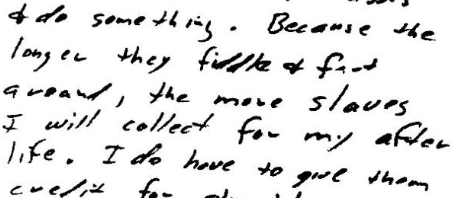 & do something. Because the
longer they fiddle & fart
around, the more slaves
I will collect for my after
life. I do have to give them
credit for